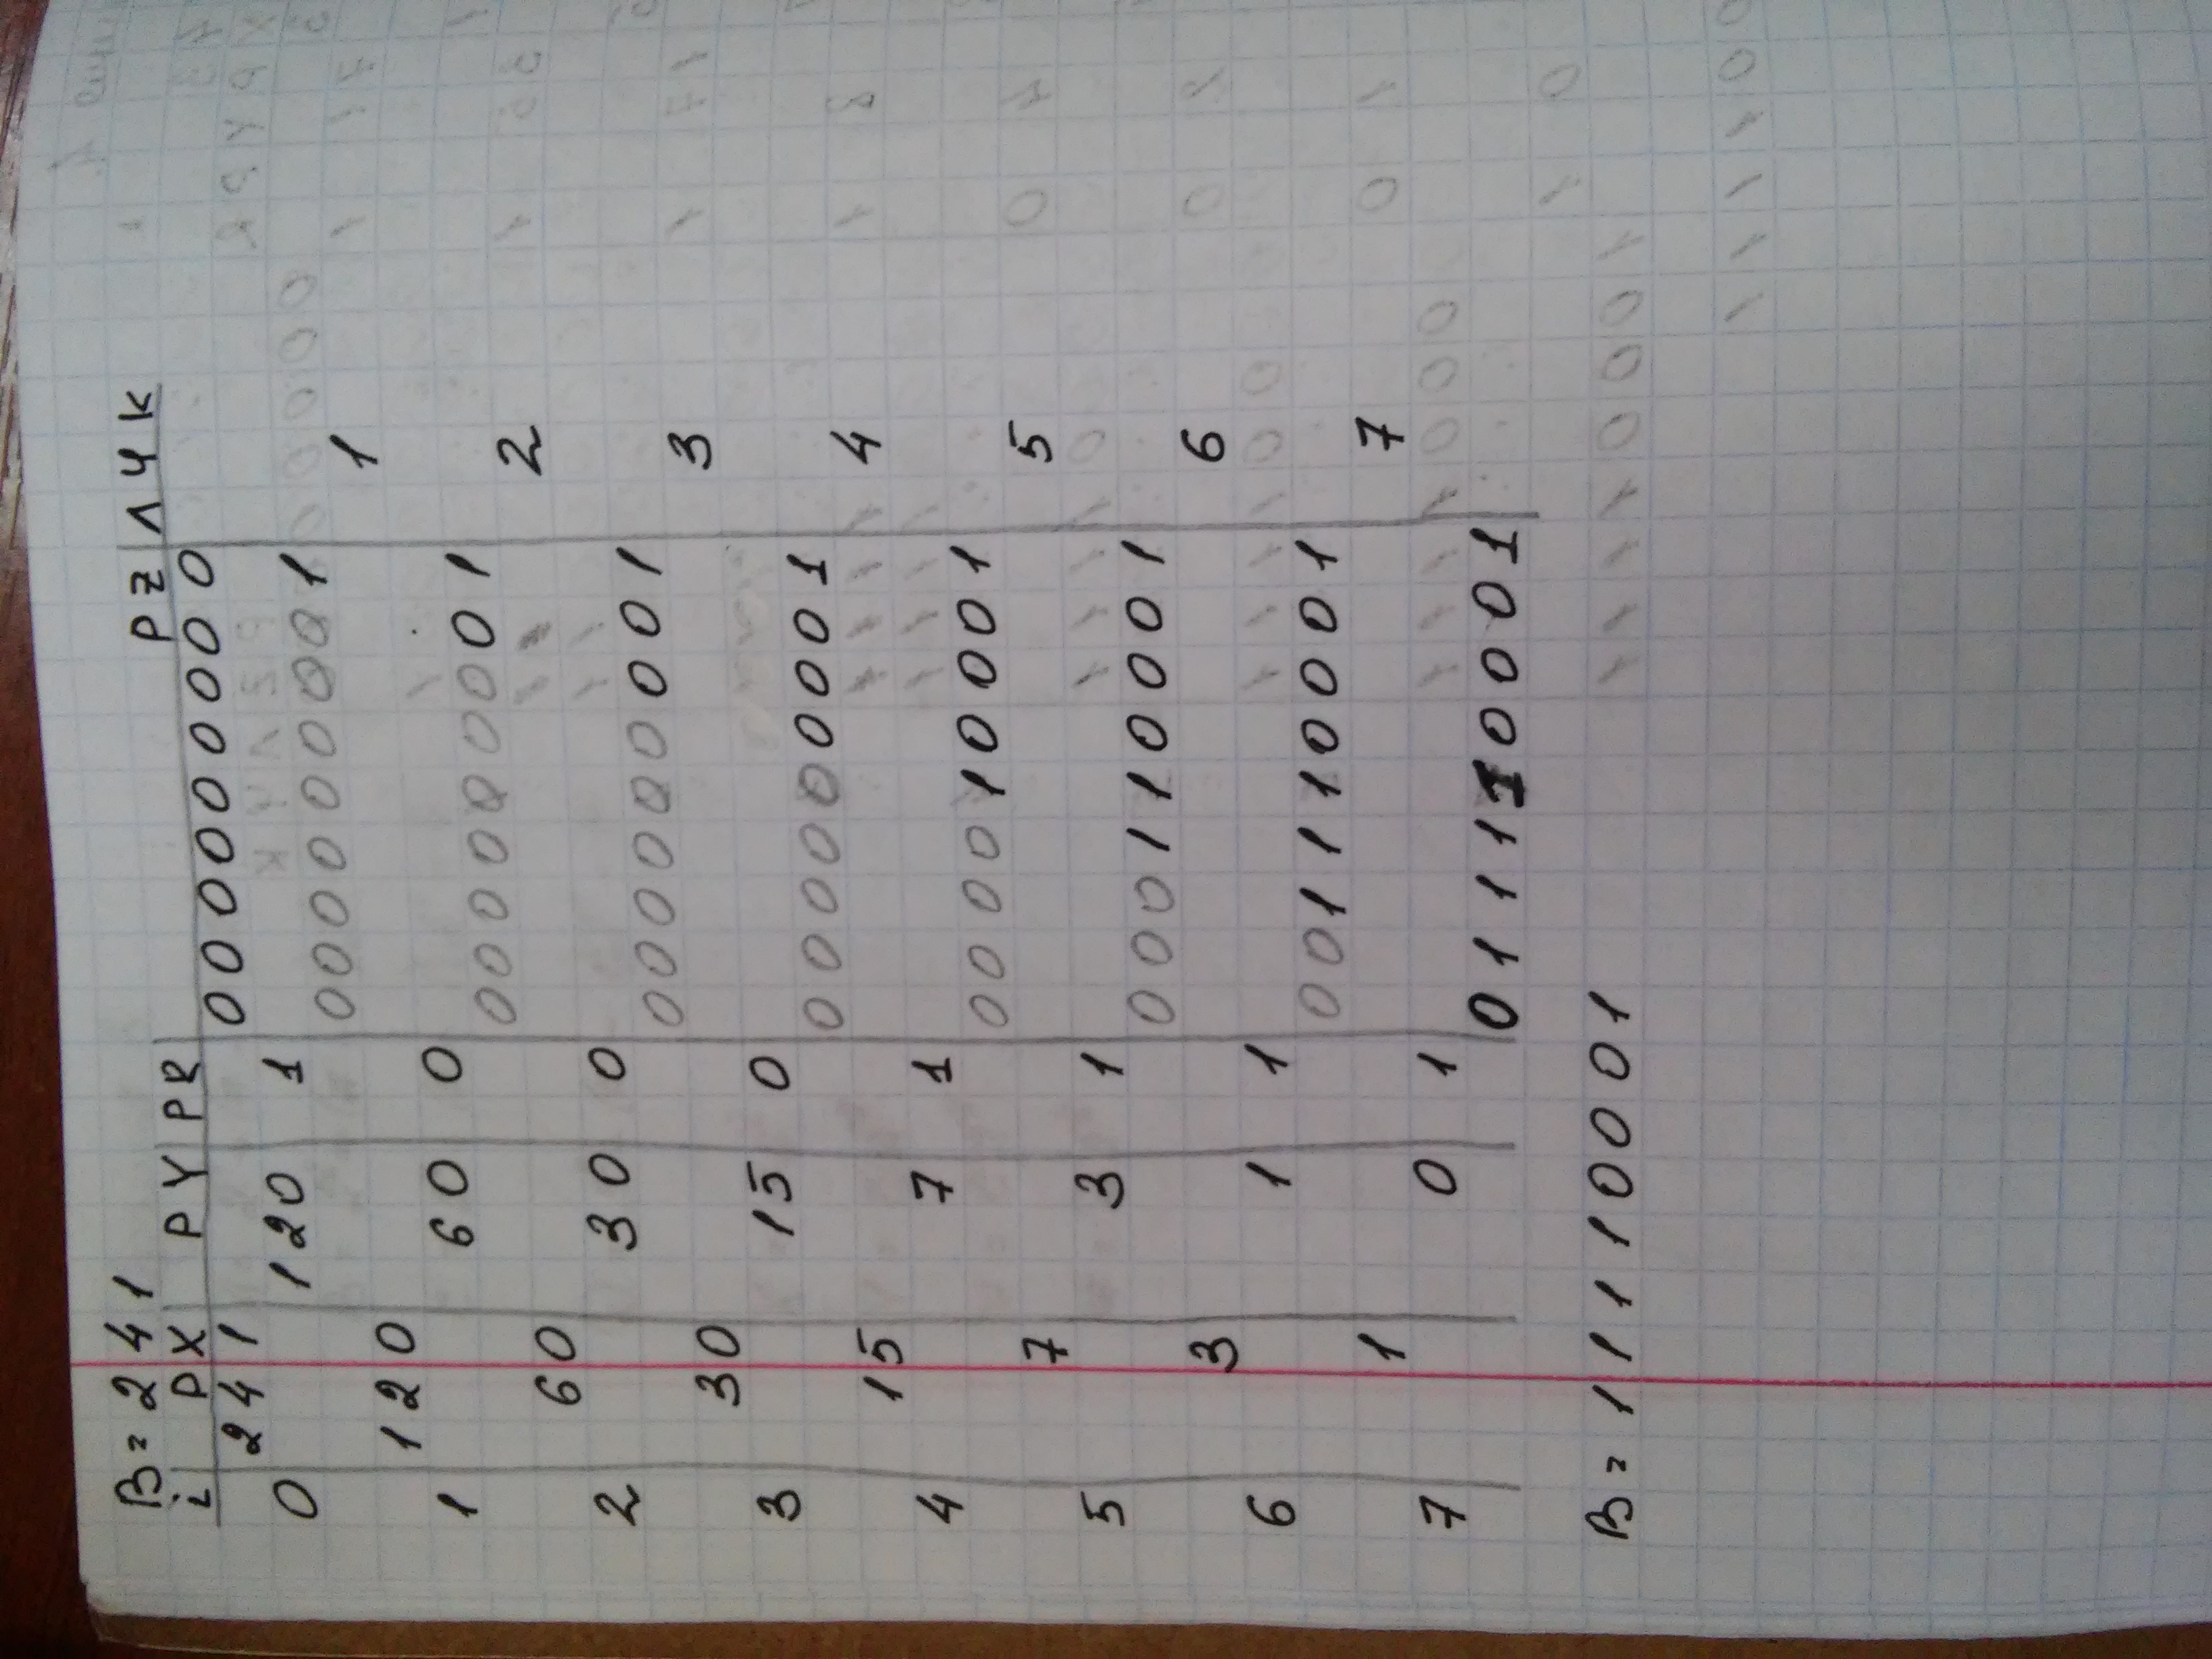 B = 241
i PX PY PR PZ ЛЧК
241 000000000
0 120 1
000000001
1
120
1 60 0
000000001
2
60
2 30 0
000000001
3
30
3 15 0
000000001
4
15
4 7 1
000010001
5
7
5 3 1
000110001
6
3
6 1 1
001110001
7
1
7 0 1
011110001
B = 11110001